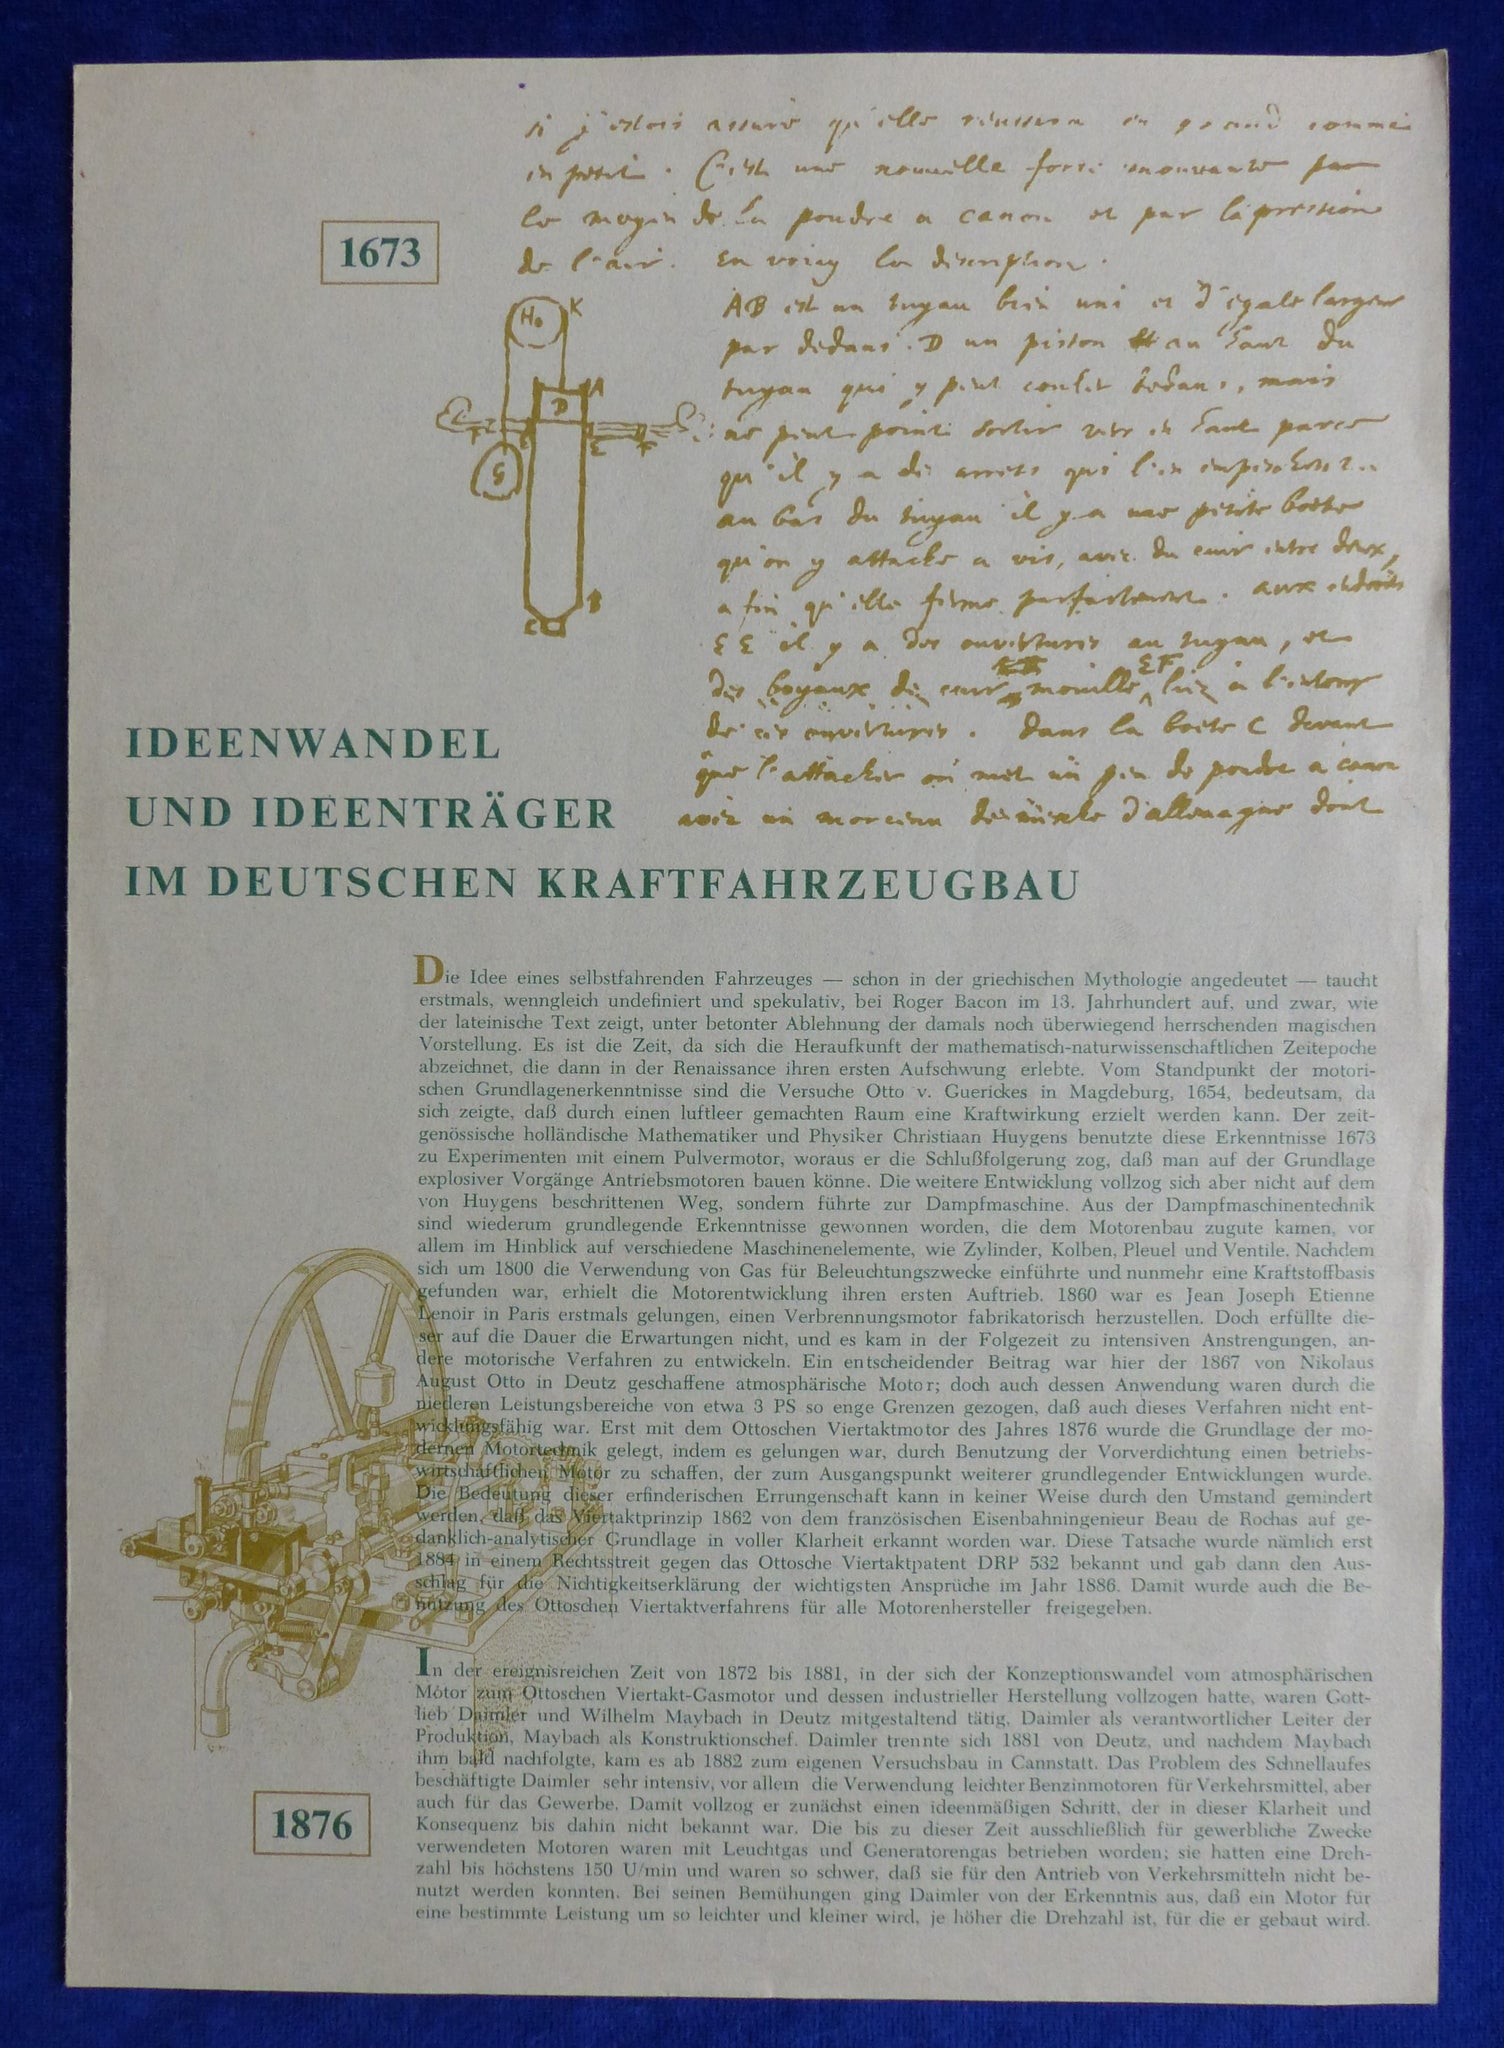 si j'estois assuré qu'elle reussira en grand comme
en petit. C'est une nouvelle force mouvante par
le moyen de la poudre a canon et par la pression
de l'air. En voicy la description.
1673
AB est un tuyau bien uni et d'egale largeur
par dedans. D un piston au haut du
tuyau qui y peut couler dedans, mais
ne peut point sortir vers en haut parce
qu'il y a des arrets qui l'en empeschent
au bas du tuyau il y a une petite boete
qu'on y attache a vis, avec du cuir entre deux,
a fin qu'elle ferme parfaitement. aux endroits
EE il y a des ouvertures au tuyau, et
des boyaux de cuir mouillé EF liez a l'entour
de ces ouvertures. Dans la boete C devant
que l'attacher on met un peu de poudre a canon
avec un morceau de mesche d'allemagne dont
H
K
A
D
E
E
F
F
G
B
C
IDEENWANDEL
UND IDEENTRÄGER
IM DEUTSCHEN KRAFTFAHRZEUGBAU
Die Idee eines selbstfahrenden Fahrzeuges — schon in der griechischen Mythologie angedeutet — taucht
erstmals, wenngleich undefiniert und spekulativ, bei Roger Bacon im 13. Jahrhundert auf, und zwar, wie
der lateinische Text zeigt, unter betonter Ablehnung der damals noch überwiegend herrschenden magischen
Vorstellung. Es ist die Zeit, da sich die Heraufkunft der mathematisch-naturwissenschaftlichen Zeitepoche
abzeichnet, die dann in der Renaissance ihren ersten Aufschwung erlebte. Vom Standpunkt der motori-
schen Grundlagenerkenntnisse sind die Versuche Otto v. Guerickes in Magdeburg, 1654, bedeutsam, da
sich zeigte, daß durch einen luftleer gemachten Raum eine Kraftwirkung erzielt werden kann. Der zeit-
genössische holländische Mathematiker und Physiker Christiaan Huygens benutzte diese Erkenntnisse 1673
zu Experimenten mit einem Pulvermotor, woraus er die Schlußfolgerung zog, daß man auf der Grundlage
explosiver Vorgänge Antriebsmotoren bauen könne. Die weitere Entwicklung vollzog sich aber nicht auf dem
von Huygens beschrittenen Weg, sondern führte zur Dampfmaschine. Aus der Dampfmaschinentechnik
sind wiederum grundlegende Erkenntnisse gewonnen worden, die dem Motorenbau zugute kamen, vor
allem im Hinblick auf verschiedene Maschinenelemente, wie Zylinder, Kolben, Pleuel und Ventile. Nachdem
sich um 1800 die Verwendung von Gas für Beleuchtungszwecke einführte und nunmehr eine Kraftstoffbasis
gefunden war, erhielt die Motorentwicklung ihren ersten Auftrieb. 1860 war es Jean Joseph Etienne
Lenoir in Paris erstmals gelungen, einen Verbrennungsmotor fabrikatorisch herzustellen. Doch erfüllte die-
ser auf die Dauer die Erwartungen nicht, und es kam in der Folgezeit zu intensiven Anstrengungen, an-
dere motorische Verfahren zu entwickeln. Ein entscheidender Beitrag war hier der 1867 von Nikolaus
August Otto in Deutz geschaffene atmosphärische Motor; doch auch dessen Anwendung waren durch die
niederen Leistungsbereiche von etwa 3 PS so enge Grenzen gezogen, daß auch dieses Verfahren nicht ent-
wicklungsfähig war. Erst mit dem Ottoschen Viertaktmotor des Jahres 1876 wurde die Grundlage der mo-
dernen Motortechnik gelegt, indem es gelungen war, durch Benutzung der Vorverdichtung einen betriebs-
wirtschaftlichen Motor zu schaffen, der zum Ausgangspunkt weiterer grundlegender Entwicklungen wurde.
Die Bedeutung dieser erfinderischen Errungenschaft kann in keiner Weise durch den Umstand gemindert
werden, daß das Viertaktprinzip 1862 von dem französischen Eisenbahningenieur Beau de Rochas auf ge-
danklich-analytischer Grundlage in voller Klarheit erkannt worden war. Diese Tatsache wurde nämlich erst
1884 in einem Rechtsstreit gegen das Ottosche Viertaktpatent DRP 532 bekannt und gab dann den Aus-
schlag für die Nichtigkeitserklärung der wichtigsten Ansprüche im Jahr 1886. Damit wurde auch die Be-
nutzung des Ottoschen Viertaktverfahrens für alle Motorenhersteller freigegeben.
In der ereignisreichen Zeit von 1872 bis 1881, in der sich der Konzeptionswandel vom atmosphärischen
Motor zum Ottoschen Viertakt-Gasmotor und dessen industrieller Herstellung vollzogen hatte, waren Gott-
lieb Daimler und Wilhelm Maybach in Deutz mitgestaltend tätig, Daimler als verantwortlicher Leiter der
Produktion, Maybach als Konstruktionschef. Daimler trennte sich 1881 von Deutz, und nachdem Maybach
ihm bald nachfolgte, kam es ab 1882 zum eigenen Versuchsbau in Cannstatt. Das Problem des Schnellaufes
beschäftigte Daimler sehr intensiv, vor allem die Verwendung leichter Benzinmotoren für Verkehrsmittel, aber
auch für das Gewerbe. Damit vollzog er zunächst einen ideenmäßigen Schritt, der in dieser Klarheit und
Konsequenz bis dahin nicht bekannt war. Die bis zu dieser Zeit ausschließlich für gewerbliche Zwecke
verwendeten Motoren waren mit Leuchtgas und Generatorengas betrieben worden; sie hatten eine Dreh-
zahl bis höchstens 150 U/min und waren so schwer, daß sie für den Antrieb von Verkehrsmitteln nicht be-
nutzt werden konnten. Bei seinen Bemühungen ging Daimler von der Erkenntnis aus, daß ein Motor für
eine bestimmte Leistung um so leichter und kleiner wird, je höher die Drehzahl ist, für die er gebaut wird.
1876